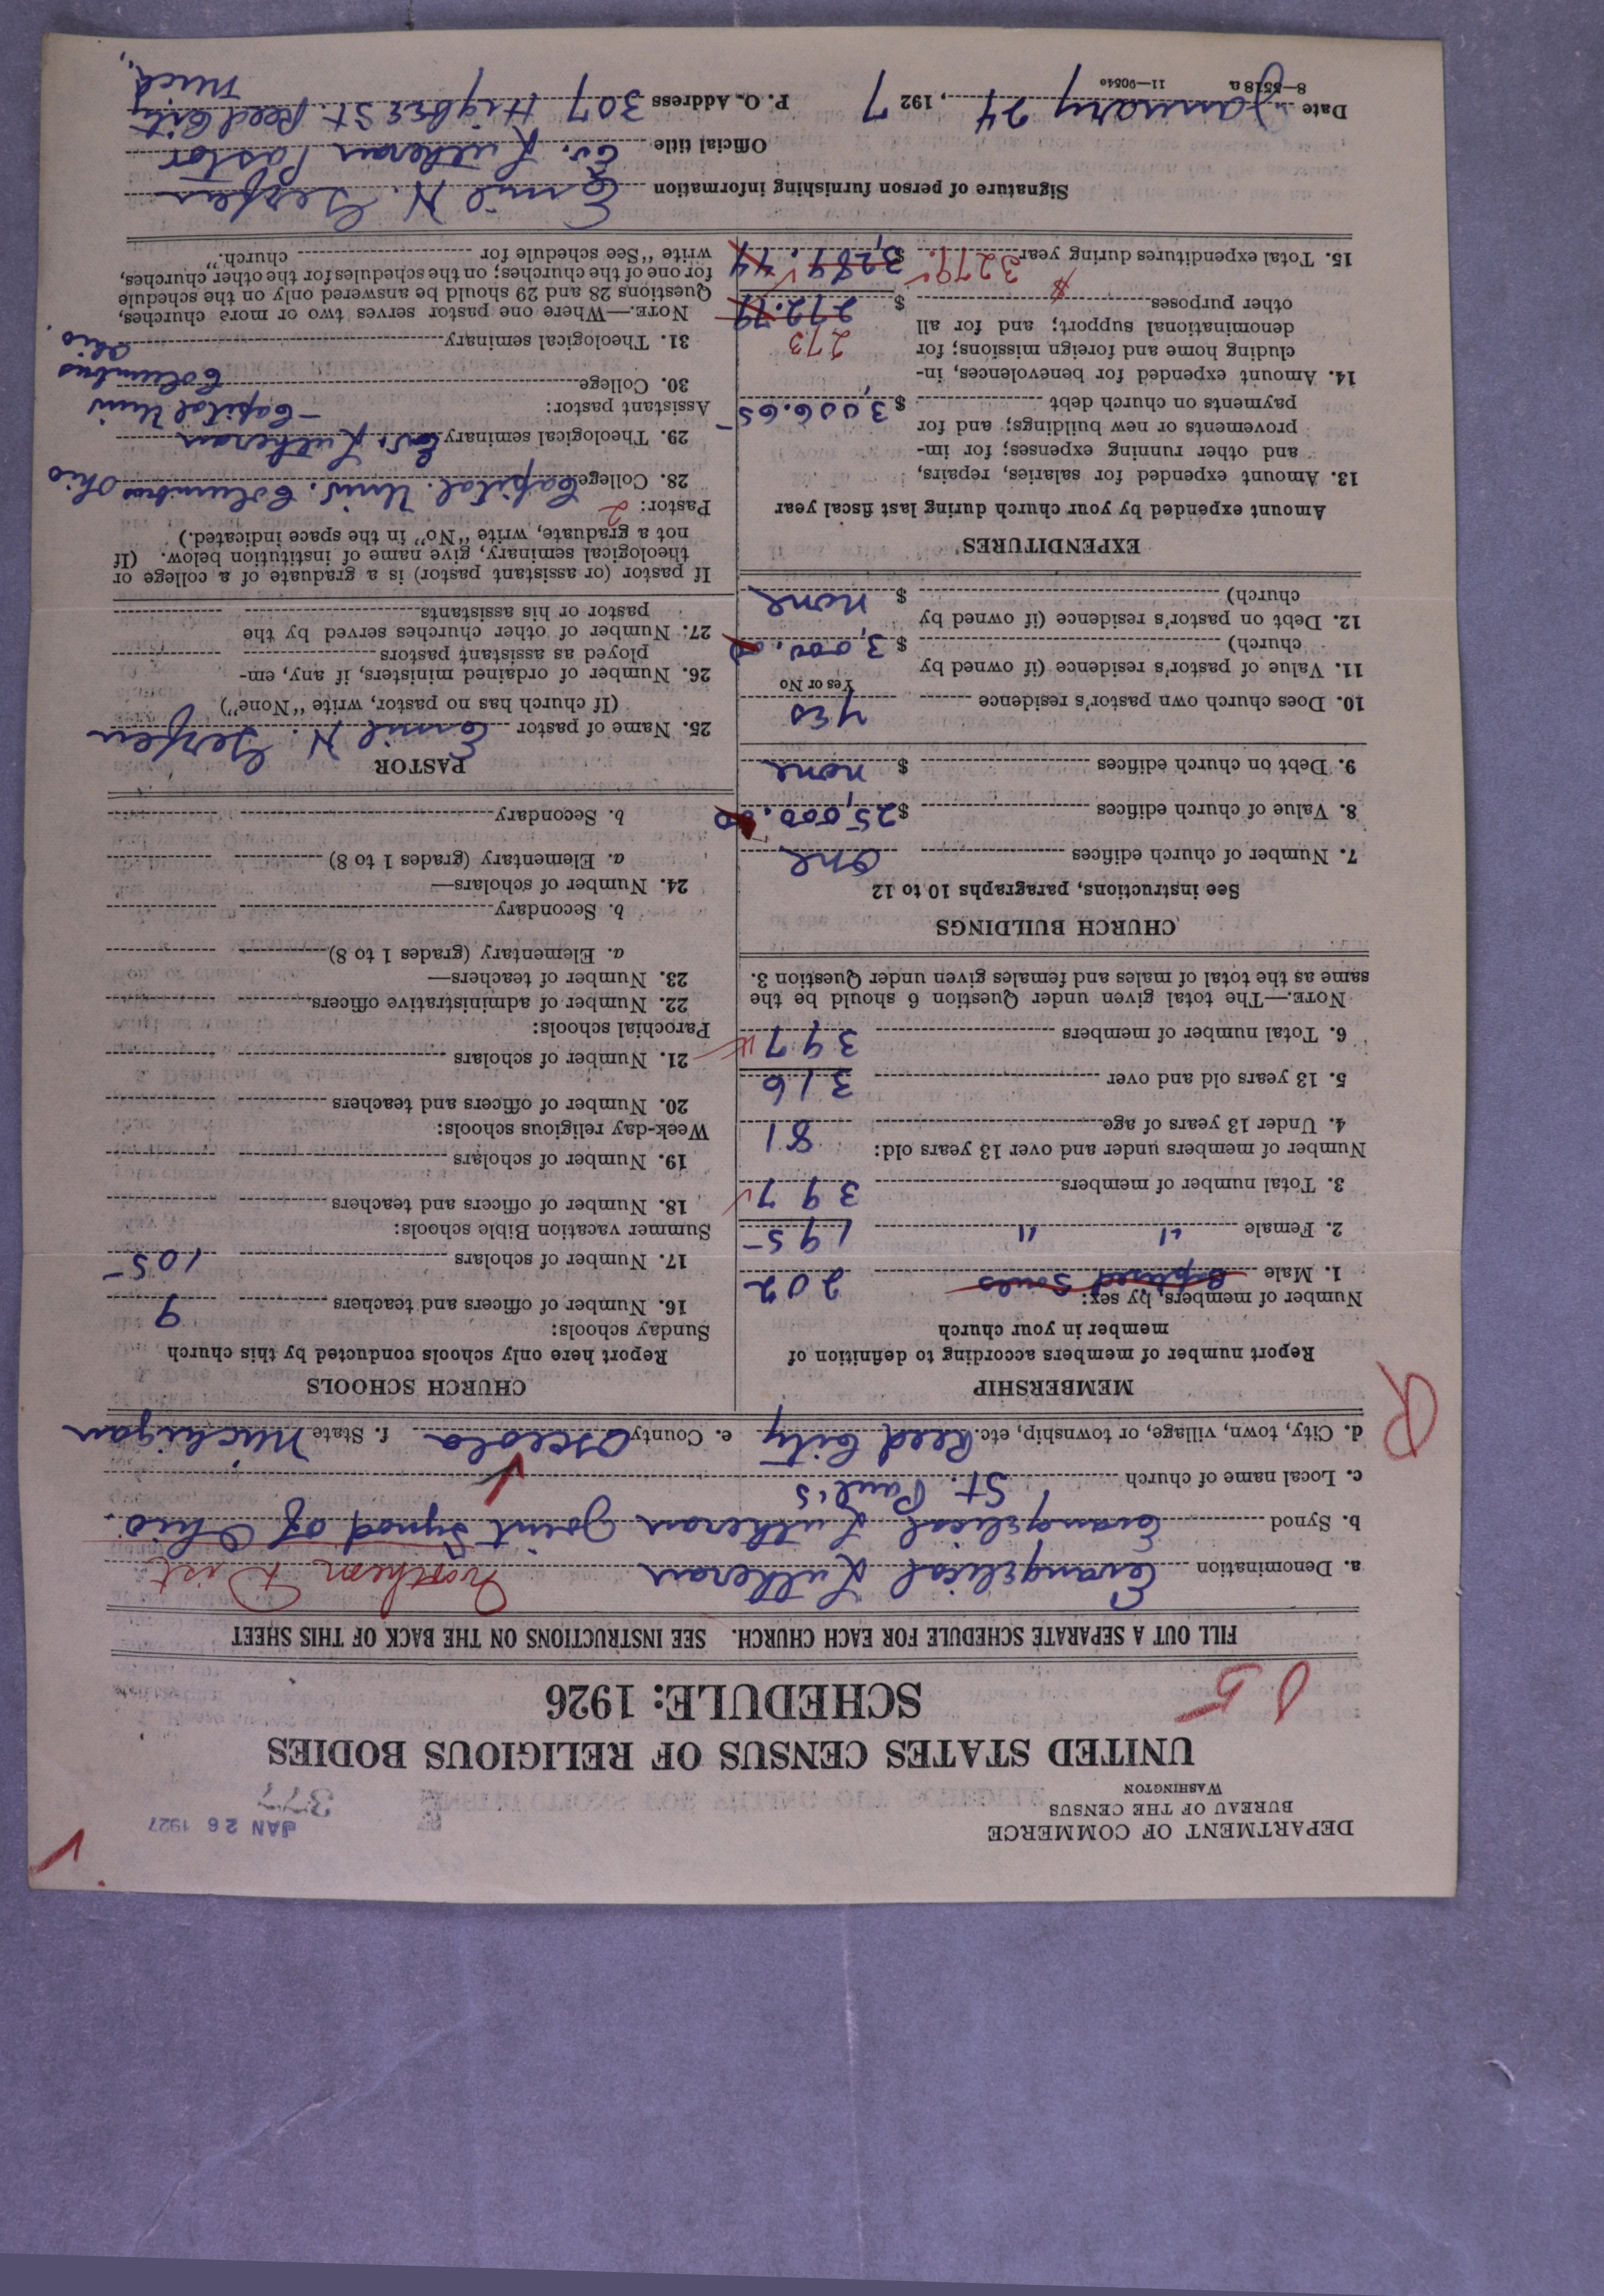 DEPARTMENT OF COMMERCE
BUREAU OF THE CENSUS
WASHINGTON
JAN 26 1927
UNITED STATES CENSUS OF RELIGIOUS BODIES
SCHEDULE: 1926
FILL OUT A SEPARATE SCHEDULE FOR EACH CHURCH. SEE INSTRUCTIONS ON THE BACK OF THIS SHEET
a. Denomination Evangelical Lutheran Northern Dist
b. Synod Evangelical Lutheran Joint Synod of Ohio.
c. Local name of church St. Paul's
d. City, town, village, or township, etc. Reed City e. County Osceola f. State Michigan
R
MEMBERSHIP
Report number of members according to definition of
member in your church
Number of members, by sex:
1. Male Baptized Souls 202
2. Female " " 195
3. Total number of members 397
Number of members under and over 13 years old:
4. Under 13 years of age 81
5. 13 years old and over 316
6. Total number of members 397
NOTE.—The total given under Question 6 should be the
same as the total of males and females given under Question 3.
CHURCH BUILDINGS
See instructions, paragraphs 10 to 12
7. Number of church edifices one
8. Value of church edifices $25,000.00
9. Debt on church edifices $ none
10. Does church own pastor's residence yes
Yes or No
11. Value of pastor's residence (if owned by
church) $3,000.00
12. Debt on pastor's residence (if owned by
church) $ none
EXPENDITURES
Amount expended by your church during last fiscal year
13. Amount expended for salaries, repairs,
and other running expenses; for im-
provements or new buildings; and for
payments on church debt $3,006.65
14. Amount expended for benevolences, in-
cluding home and foreign missions; for
denominational support; and for all
other purposes $ 272.79
273
15. Total expenditures during year $3279
CHURCH SCHOOLS
Report here only schools conducted by this church
Sunday schools:
16. Number of officers and teachers 9
17. Number of scholars 105
Summer vacation Bible schools:
18. Number of officers and teachers
19. Number of scholars
Week-day religious schools:
20. Number of officers and teachers
21. Number of scholars
Parochial schools:
22. Number of administrative officers
23. Number of teachers—
a. Elementary (grades 1 to 8)
b. Secondary
24. Number of scholars—
a. Elementary (grades 1 to 8)
b. Secondary
PASTOR
25. Name of pastor Emil N.
(If church has no pastor, write "None")
26. Number of ordained ministers, if any, em-
ployed as assistant pastors
27. Number of other churches served by the
pastor or his assistants
If pastor (or assistant pastor) is a graduate of a college or
theological seminary, give name of institution below. (If
not a graduate, write "No" in the space indicated.)
Pastor: 2
28. College Capital Univ. Columbus Ohio
29. Theological seminary Ev. Lutheran
Assistant pastor: — Capital Univ
30. College Columbus
31. Theological seminary Ohio.
NOTE.—Where one pastor serves two or more churches,
Questions 28 and 29 should be answered only on the schedule
for one of the churches; on the schedules for the other churches,
write "See schedule for church."
Signature of person furnishing information Emil N.
Official title Ev. Lutheran Pastor
Date January 24, 1927 P. O. Address 307 Higbee St. Reed City
Mich.
8—5518a 11—9054c